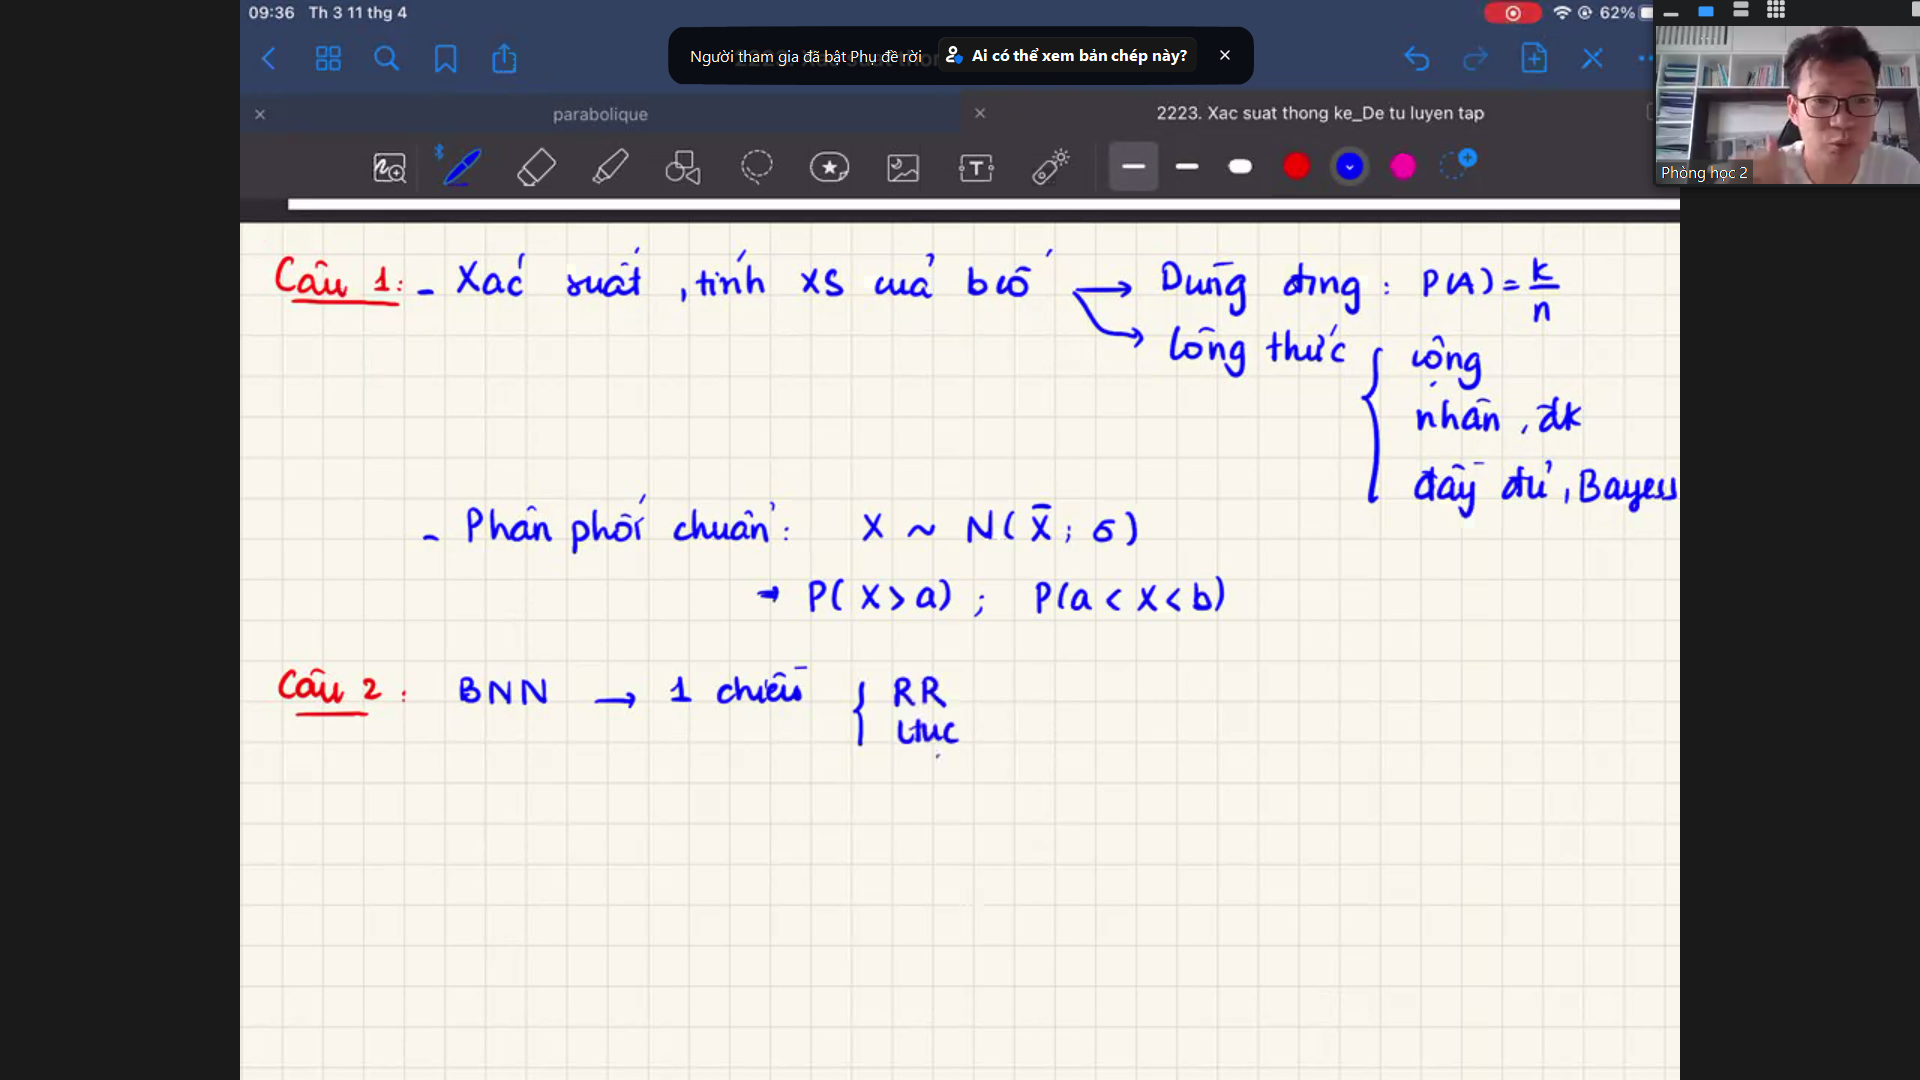 09:36 Th 3 11 thg 4
62%
Người tham gia đã bật Phụ đề rời
Ai có thể xem bản chép này?
parabolique
2223. Xac suat thong ke_De tu luyen tap
Phòng học 2
Câu 1: - Xác suất, tính XS của bcố → Dùng đ/ng : P(A) = k/n
Công thức { cộng
nhân, đk
đầy đủ, Bayess
- Phân phối chuẩn: X ~ N(X̄; σ)
→ P(X > a) ; P(a < X < b)
Câu 2 : BNN → 1 chiều { RR
Ltục